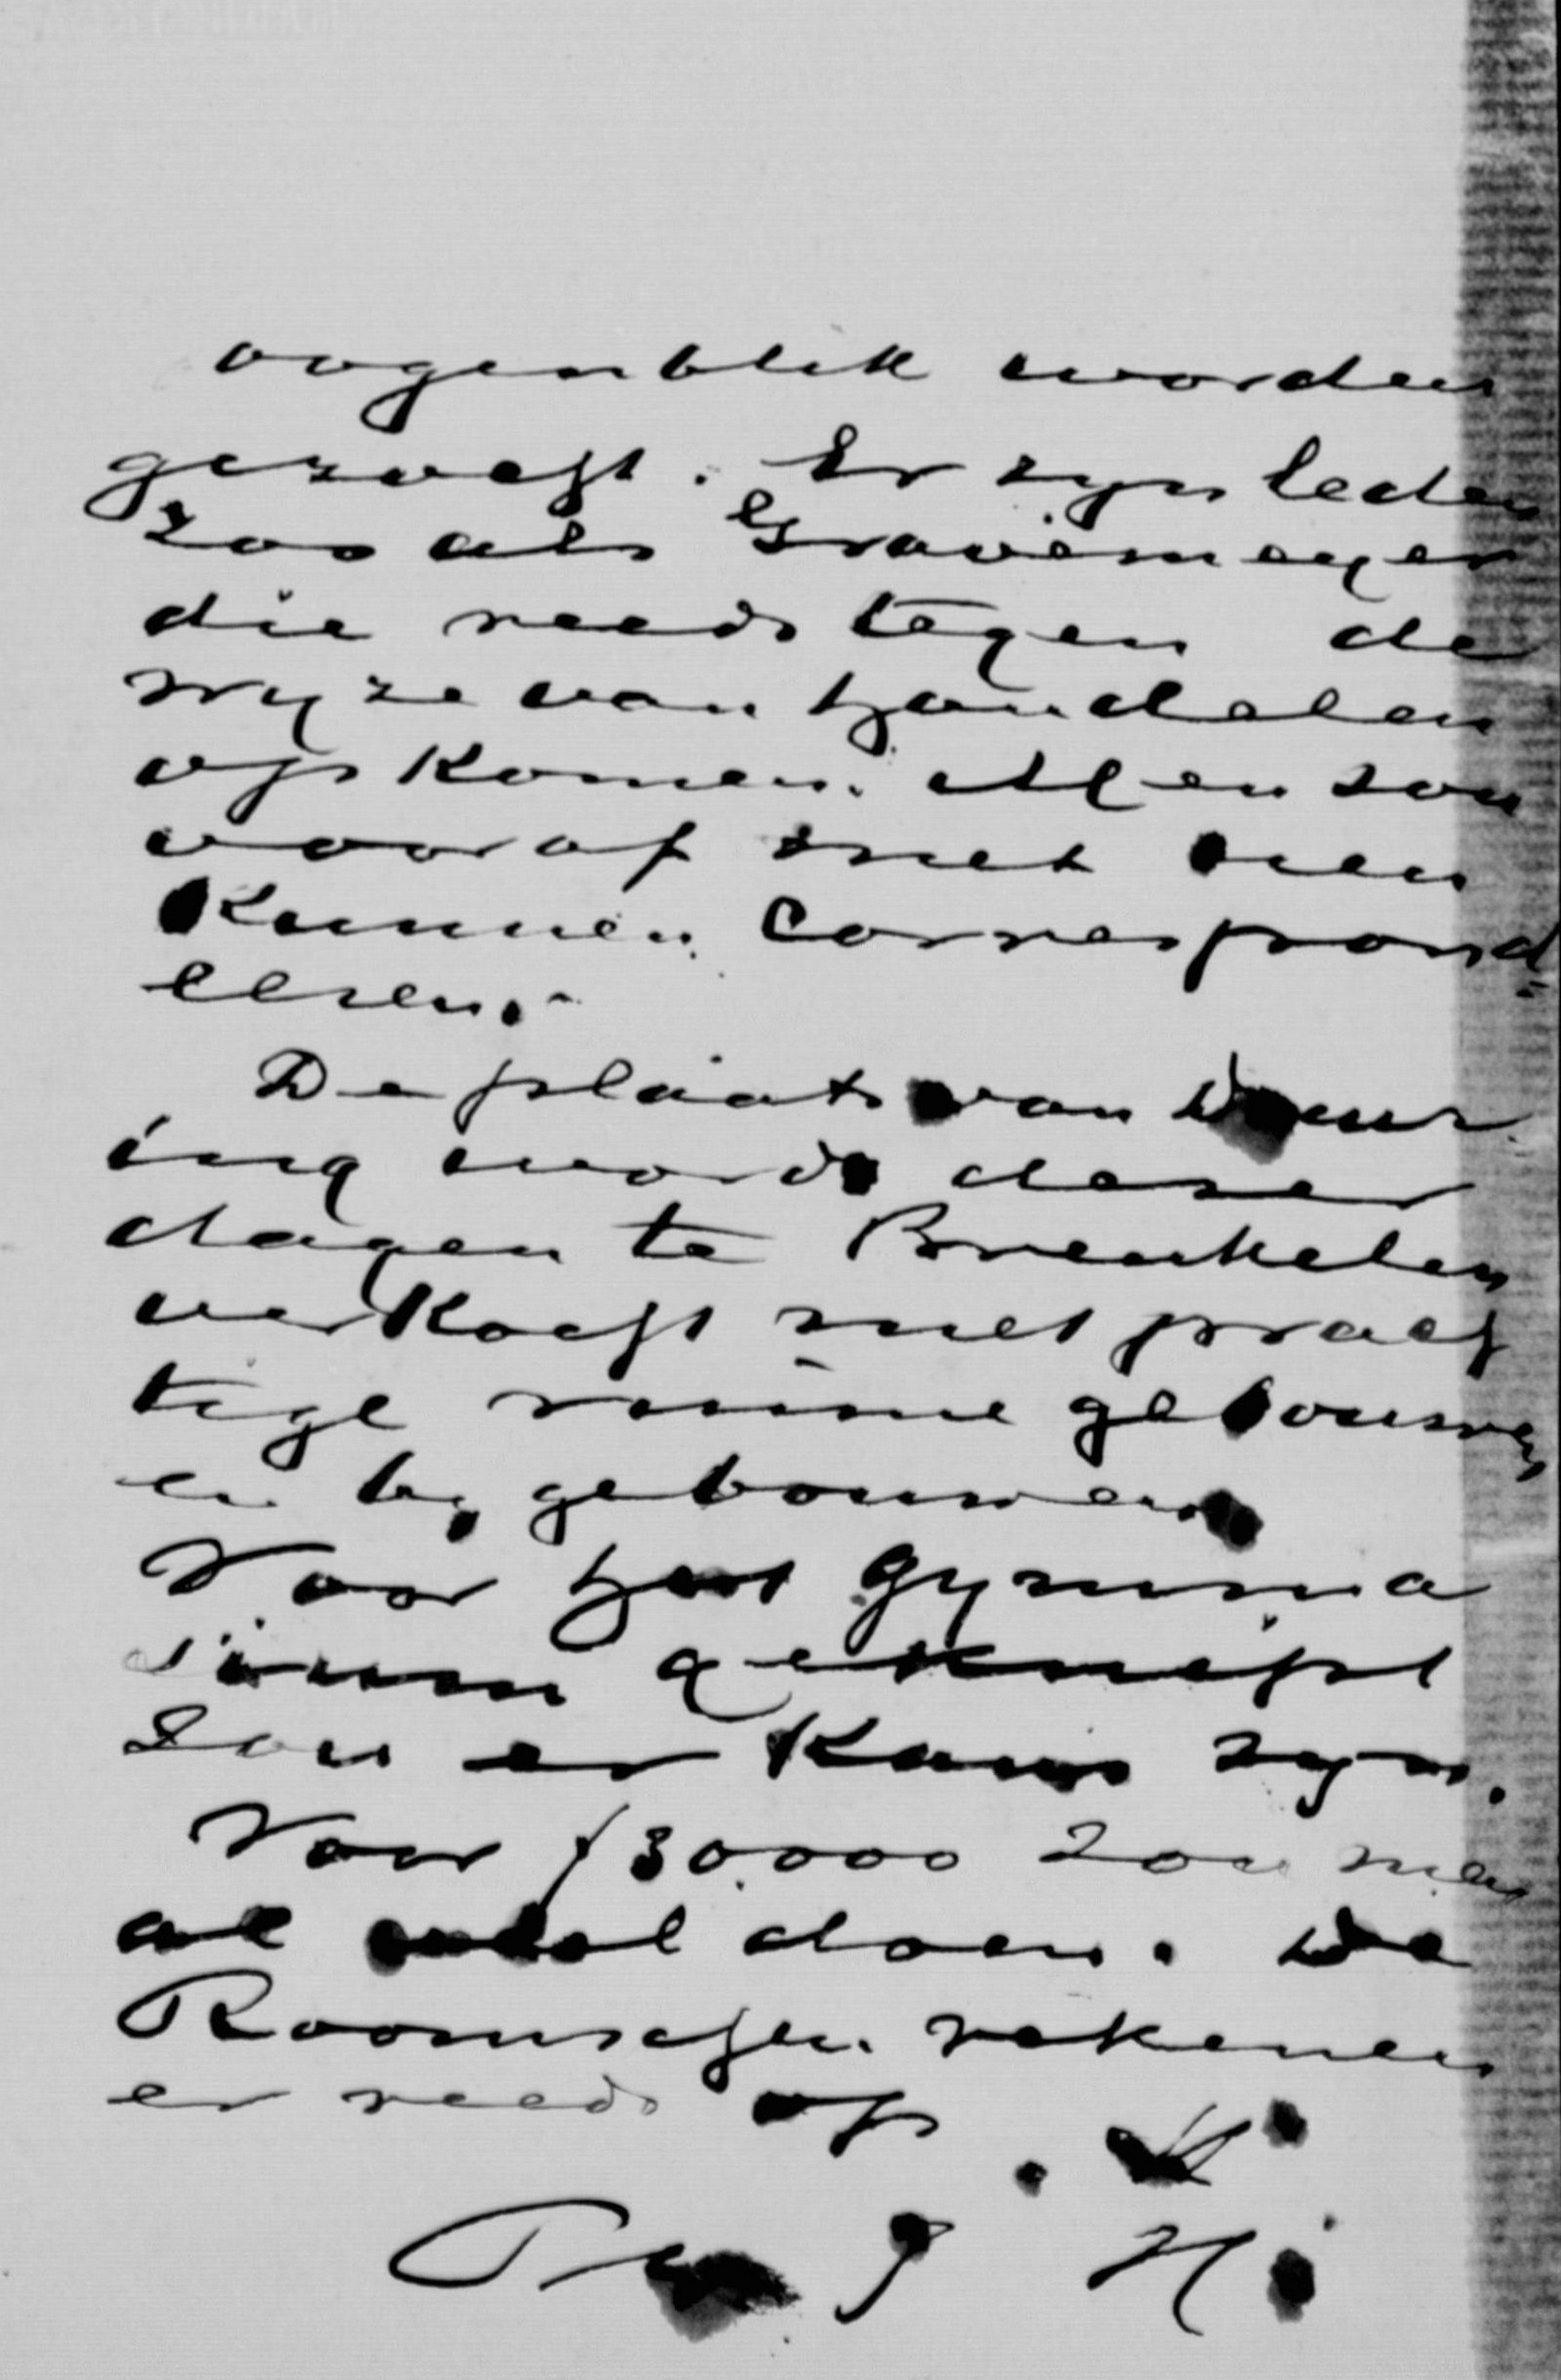 oogenblik worden
gezocht. Er zyn leden
zooals Gravemeyer
die reeds tegen de
wyze van handelen
opkomen. Men zou
vooraf met een
Kunnen Correspond=
eeren.
De plaats van
ing wordt dezer
dagen te Breukelen
verkocht met prach
tige ruime gebouwen
en bygebouwen
Voor het gymna
sium geknipt
Zou er Kans zyn.
Voor f 30.000 zou men
al veel doen. De
Roomschen rekenen
er reeds op.